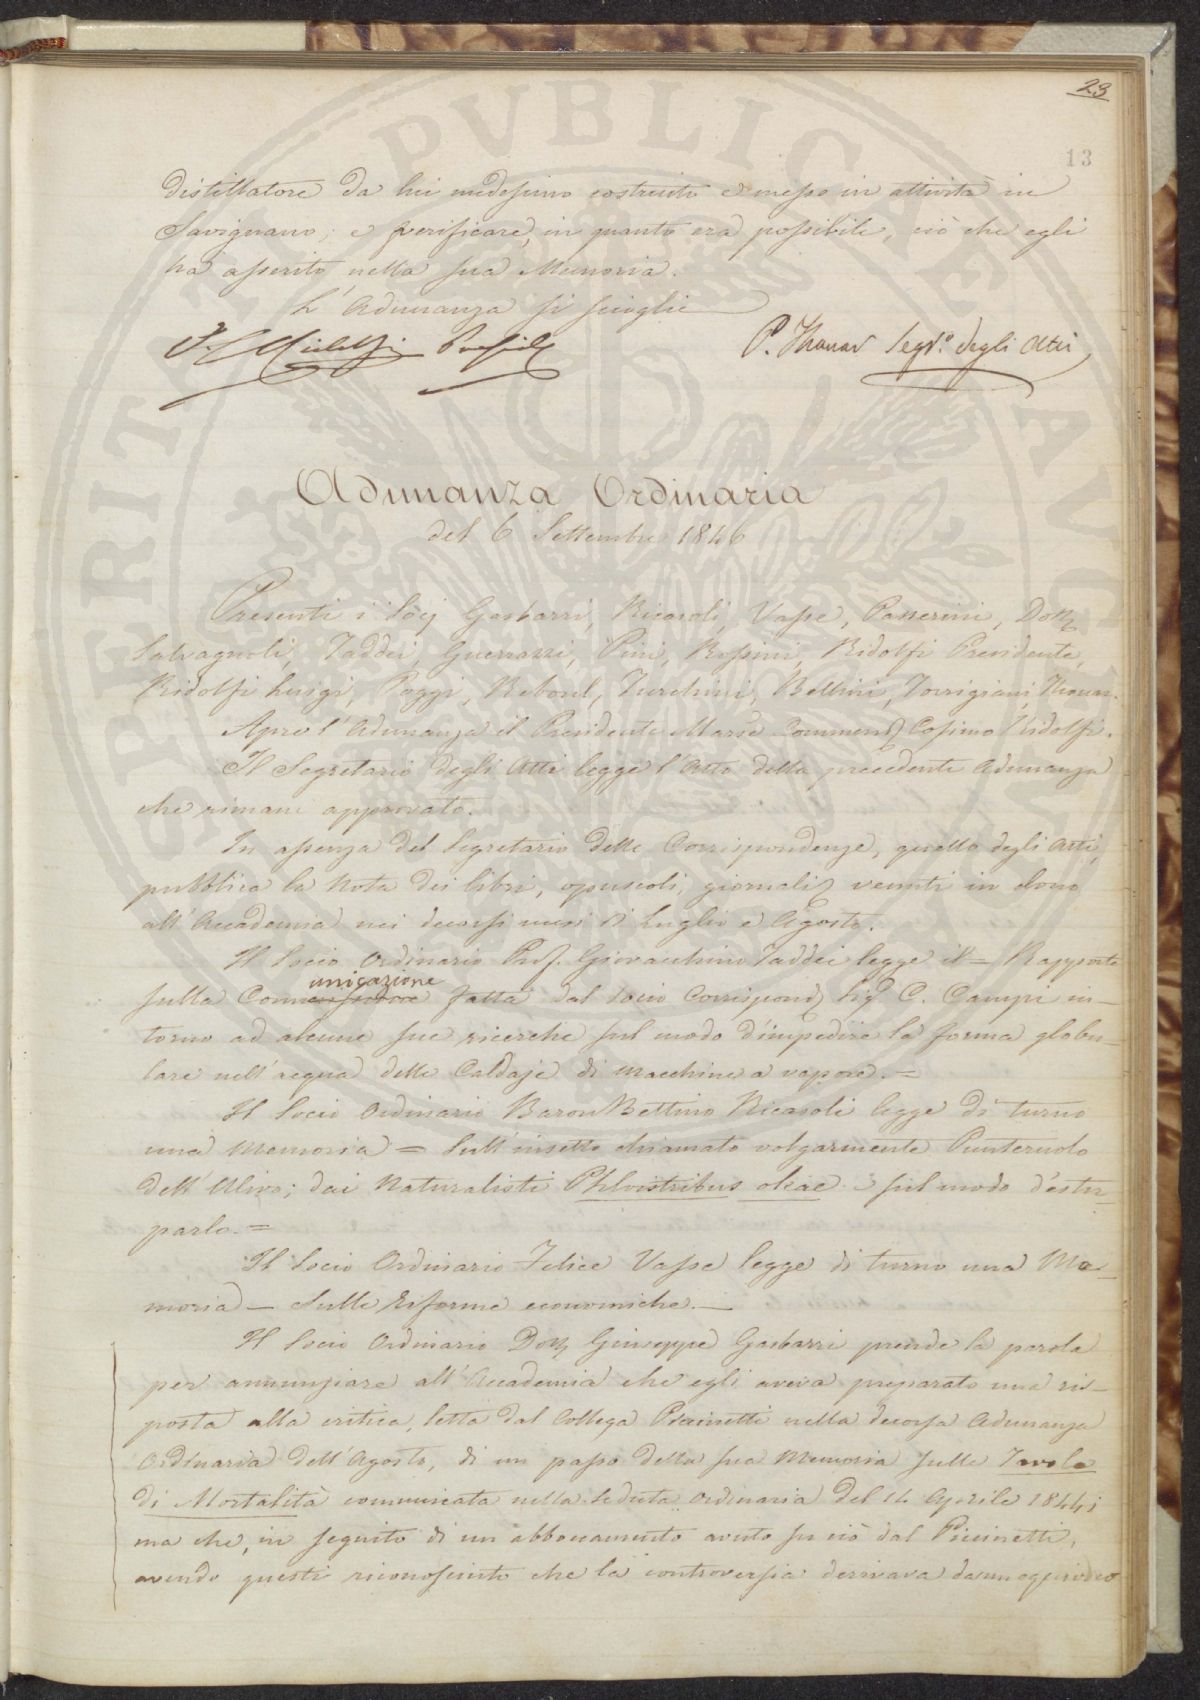 23
13
distillatore da lui medesimo costruito e messo in attività in
Savignano; e verificare, in quanto era possibile, ciò che egli
ha asserito nella sua Memoria.
L'Adunanza si scioglie
P. Thouar Segr.o degli Atti
Adunanza Ordinaria
del 6 Settembre 1846
Presenti i Socj Gasbarri, Ricasoli, Vasse, Passerini, Dott
Salvagnoli, Taddei, Guerrazzi, Pini, Rossini, Ridolfi Presidente,
Ridolfi Luigi, Poggi, Reboul, Turchini, Bellini, Torrigiani, Thouar.
Apre l'Adunanza il Presidente March Commend Cosimo Ridolfi.
Il Segretario degli Atti legge l'Atto della precedente Adunanza
che rimane approvato.
In assenza del Segretario delle Corrispondenze, quello degli Atti,
pubblica la Nota dei libri, opuscoli, giornali venuti in dono
all'Accademia nei decorsi mesi di Luglio e Agosto.
Il Socio Ordinario Prof. Giovacchino Taddei legge il = Rapporto
unicazione
sulla Comm fatta dal Socio Corrispond Sig C. Campi in-
torno ad alcune sue ricerche sul modo d'impedire la forma globu-
lare nell'acqua delle Caldaje di Macchine a vapore. =
Il Socio Ordinario Baron Bettino Ricasoli legge di turno
una Memoria = Sull'insetto chiamato volgarmente Punteruolo
dell'Ulivo; dai Naturalisti Phloistribus oleae e sul modo d'estir-
parlo. =
Il Socio Ordinario Felice Vasse legge di turno una Me-
moria - Sulle Riforme economiche. -
Il Socio Ordinario Dott Giuseppe Gasbarri prende la parola
per annunziare all'Accademia che egli aveva preparato una ris-
posta alla critica, letta dal Collega Piccinetti nella decorsa Adunanza
Ordinaria dell'Agosto, di un passo della sua Memoria sulle Tavole
di Mortalità comunicata nella Seduta Ordinaria del 14 Aprile 1844;
ma che, in seguito di un abboccamento avuto su ciò dal Piccinetti,
avendo questi riconosciuto che la controversia derivava da un equivoco